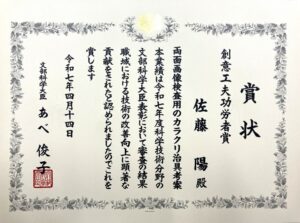 賞状
創意工夫功労者賞
佐藤 陽 殿
両面画像検査用のカラクリ治具考案
本業績は令和七年度科学技術分野の
文部科学大臣表彰において審査の結果
職域における技術の改善向上に顕著な
貢献をされたと認められましたのでこれを
賞します
令和七年四月十四日
文部科学大臣 あべ 俊子